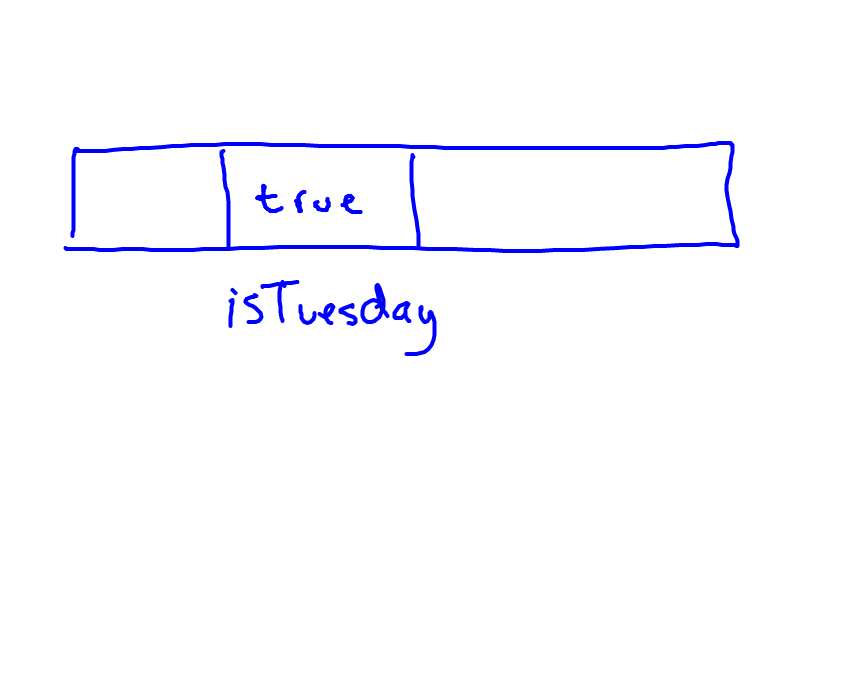 true
isTuesday